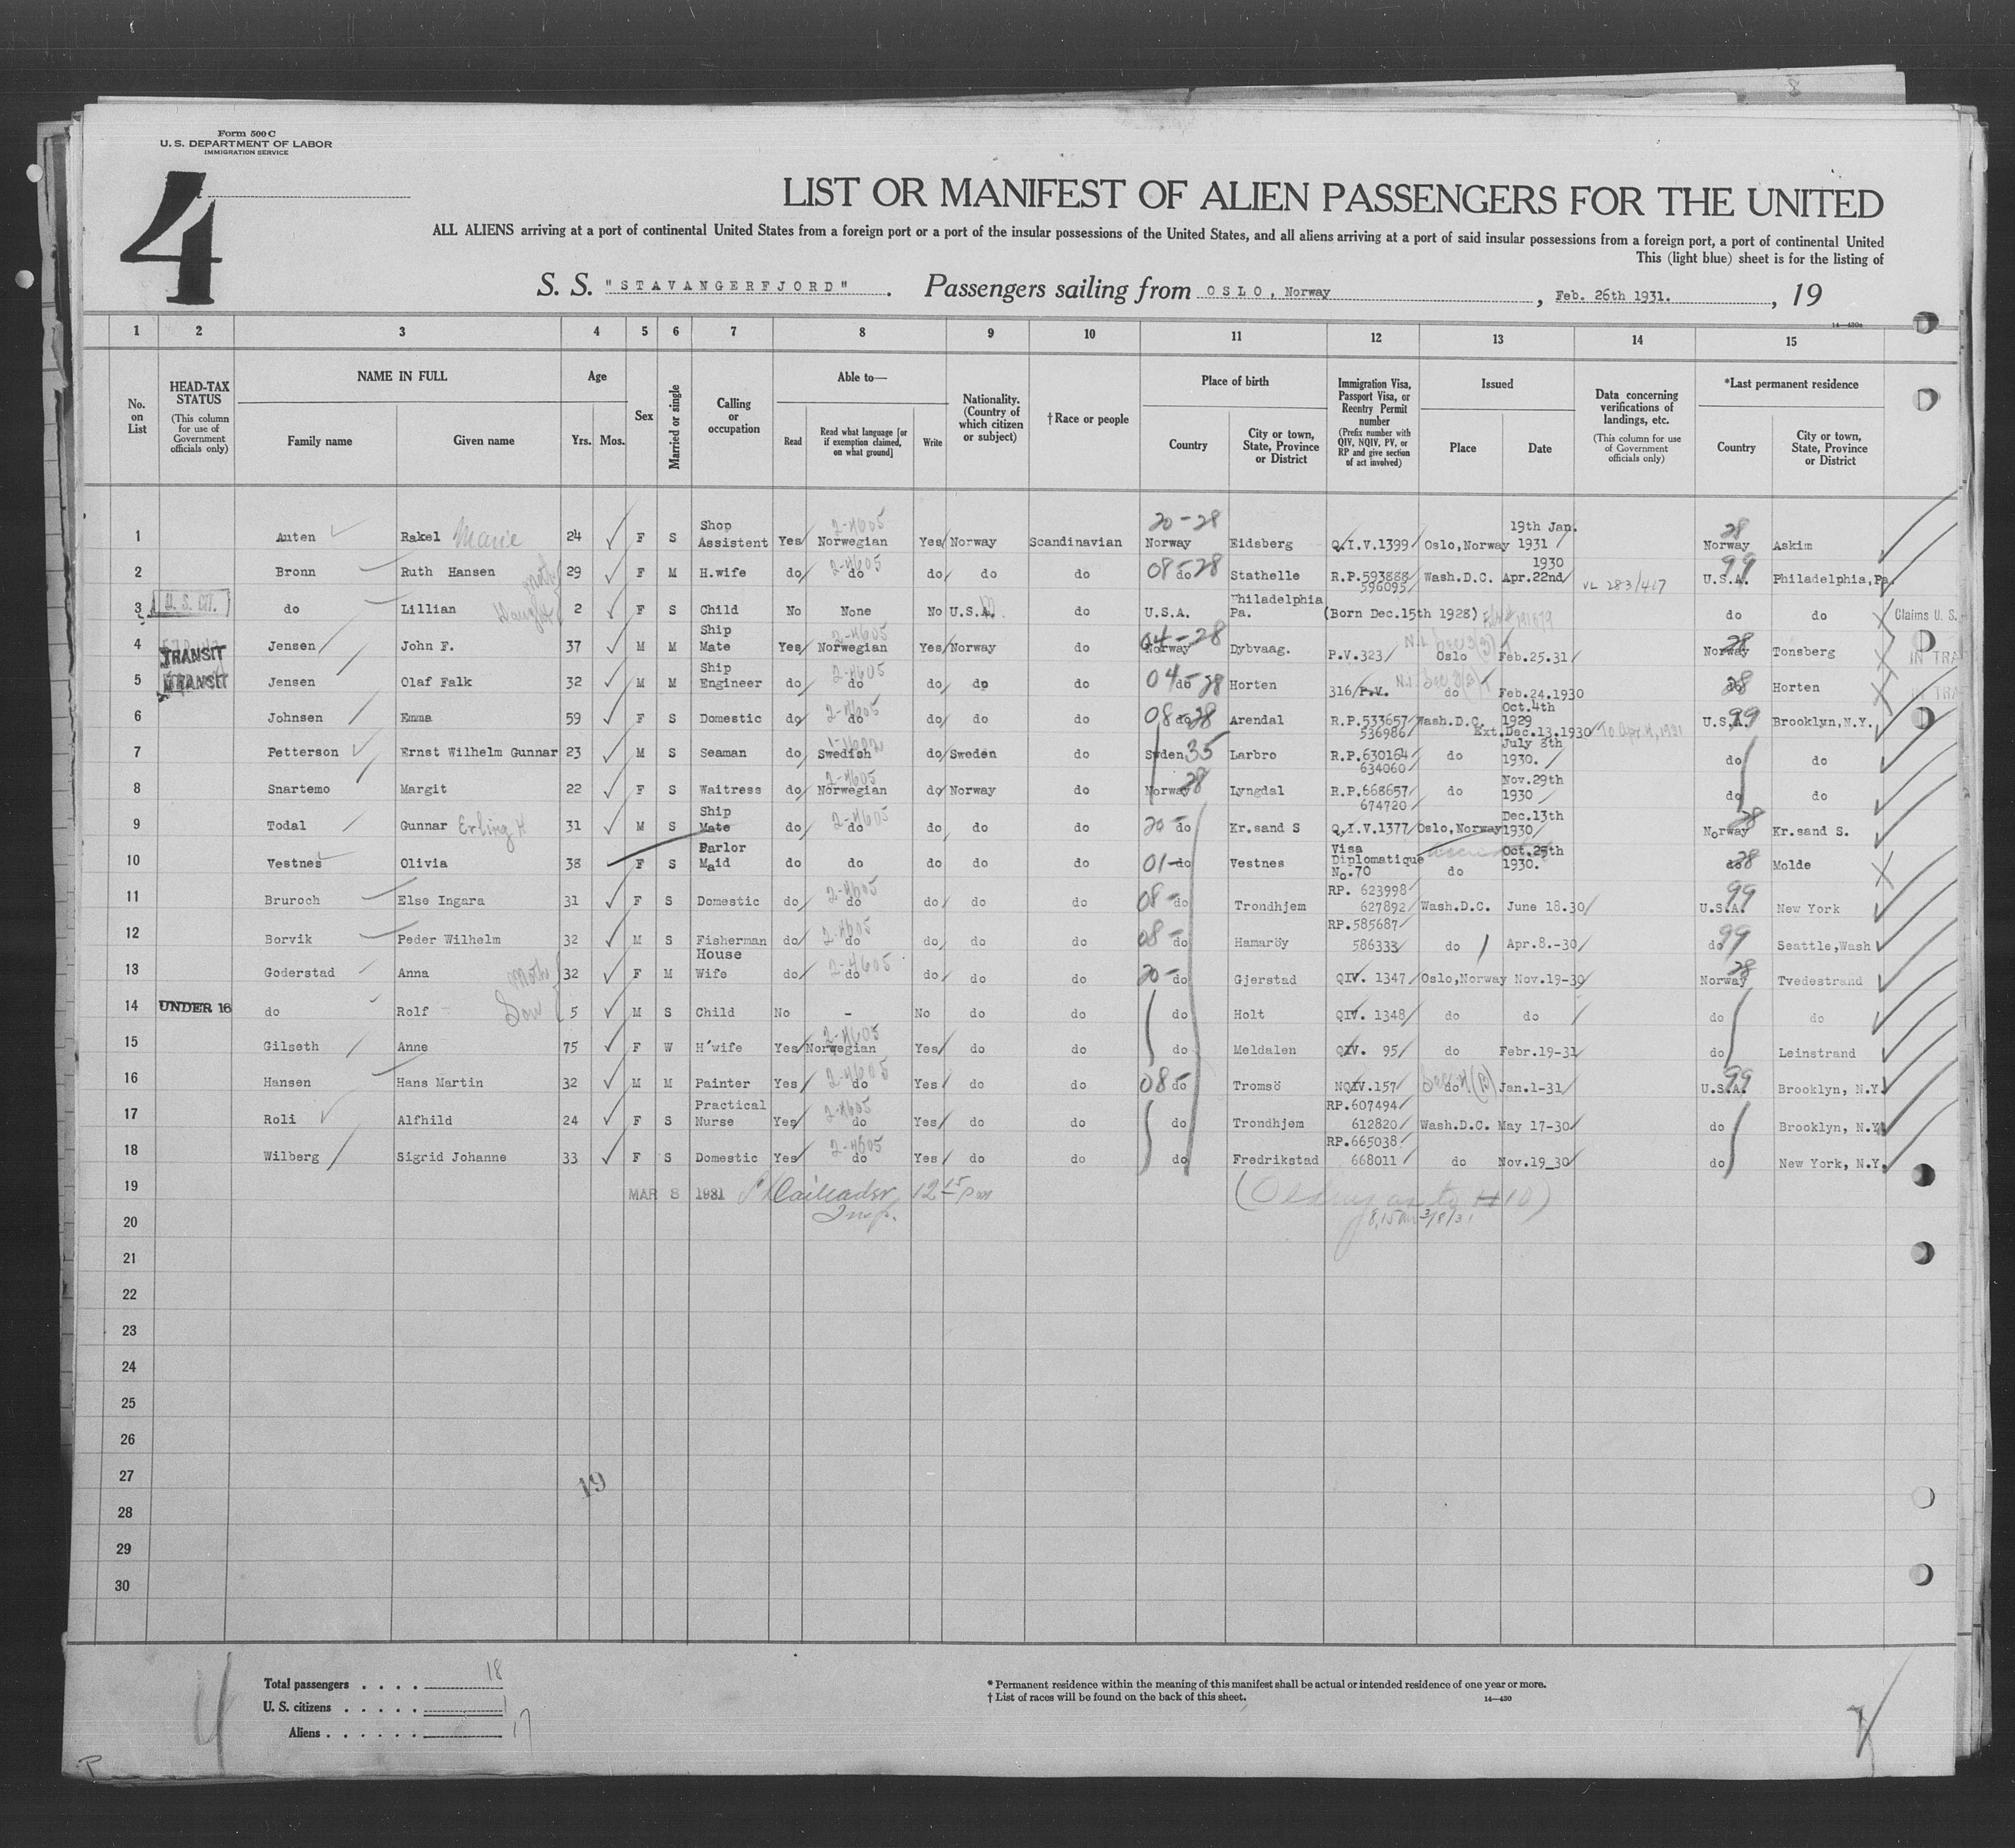 8
Form 500 C
U. S. DEPARTMENT OF LABOR
IMMIGRATION SERVICE
4
LIST OR MANIFEST OF ALIEN PASSENGERS FOR THE UNITED
ALL ALIENS arriving at a port of continental United States from a foreign port or a port of the insular possessions of the United States, and all aliens arriving at a port of said insular possessions from a foreign port, a port of continental United
This (light blue) sheet is for the listing of
S. S. "STAVANGERFJORD". Passengers sailing from OSLO, Norway, Feb. 26th 1931., 19
14—430a
1 2 3 4 5 6 7 8 9 10 11 12 13 14 15
No. on List
HEAD-TAX STATUS (This column for use of Government officials only)
NAME IN FULL Family name Given name
Age Yrs. Mos.
Sex
Married or single
Calling or occupation
Able to— Read Read what language [or if exemption claimed, on what ground] Write
Nationality. (Country of which citizen or subject)
† Race or people
Place of birth Country City or town, State, Province or District
Immigration Visa, Passport Visa, or Reentry Permit number (Prefix number with QIV, NQIV, PV, or RP and give section of act involved)
Issued Place Date
Data concerning verifications of landings, etc. (This column for use of Government officials only)
*Last permanent residence Country City or town, State, Province or District
1 Auten Rakel Marie 24 F S Shop Assistent Yes 2-4605 Norwegian Yes Norway Scandinavian 20-28 Norway Eidsberg Q.I.V.1399 Oslo,Norway 19th Jan. 1931 28 Norway Askim
2 Bronn Ruth Hansen Moth 29 F M H.wife do 2-4605 do do do do 08-28 do Stathelle R.P.593888 596095 Wash.D.C. 1930 Apr.22nd VL 283/417 99 U.S.A. Philadelphia,Pa.
3 U. S. CIT. do Lillian Daught 2 F S Child No None No U.S.A. do U.S.A. Philadelphia Pa. (Born Dec.15th 1928) do do Claims U. S.
4 TRANSIT Jensen John F. 37 M M Ship Mate Yes 2-4605 Norwegian Yes Norway do 04-28 Norway Dybvaag. P.V.323 Oslo Feb.25.31 28 Norway Tonsberg IN TRA
5 TRANSIT Jensen Olaf Falk 32 M M Ship Engineer do 2-4605 do do do do 04 do 28 Horten 316 P.V. do Feb.24.1930 28 do Horten IN TRA
6 Johnsen Emma 59 F S Domestic do 2-4605 do do do do 08-28 do Arendal R.P.533657 536986 Wash.D.C. Oct.4th 1929 Ext.Dec.13.1930 To Apr. 4, 1931 99 U.S.A. Brooklyn,N.Y.
7 Petterson Ernst Wilhelm Gunnar 23 M S Seaman do Swedish do Sweden do Swden 35 Larbro R.P.630164 634060 do July 8th 1930. do do
8 Snartemo Margit 22 F S Waitress do 2-4605 Norwegian do Norway do Norway 28 Lyngdal R.P.668657 674720 do Nov.29th 1930 do do
9 Todal Gunnar Erling H 31 M S Ship Mate do 2-4605 do do do do 20- do Kr.sand S Q.I.V.1377 Oslo,Norway Dec.13th 1930 28 Norway Kr.sand S.
10 Vestnes Olivia 38 F S Parlor Maid do do do do do 01- do Vestnes Visa Diplomatique No.70 do Oct.25th 1930. 28 do Molde
11 Bruroch Else Ingara 31 F S Domestic do 2-4605 do do do do 08- do Trondhjem RP. 623998 627892 Wash.D.C. June 18.30 99 U.S.A. New York
12 Borvik Peder Wilhelm 32 M S Fisherman do 2-4605 do do do do 08- do Hamaröy RP.585687 586333 do Apr.8.-30 99 do Seattle,Wash
13 Goderstad Anna Moth 32 F M House Wife do 2-4605 do do do do 20- do Gjerstad QIV. 1347 Oslo,Norway Nov.19-30 28 Norway Tvedestrand
14 UNDER 16 do Rolf Son 5 M S Child No - No do do do Holt QIV. 1348 do do do do
15 Gilseth Anne 75 F W H'wife Yes 2-4605 Norwegian Yes do do do Meldalen QIV. 95 do Febr.19-31 do Leinstrand
16 Hansen Hans Martin 32 M M Painter Yes 2-4605 do Yes do do 08- do Tromsö NQIV.157 do Jan.1-31 99 U.S.A. Brooklyn, N.Y.
17 Roli Alfhild 24 F S Practical Nurse Yes 2-4605 do Yes do do do Trondhjem RP.607494 612820 Wash.D.C. May 17-30 do Brooklyn, N.Y.
18 Wilberg Sigrid Johanne 33 F S Domestic Yes 2-4605 do Yes do do do Fredrikstad RP.665038 668011 do Nov.19_30 do New York, N.Y.
19 MAR 8 1931 12 15 pm
20 Insp. 8,15 3/8/31
21
22
23
24
25
26
27
19
28
29
30
Total passengers . . . . 18
U. S. citizens . . . . . 1
Aliens . . . . . . 17
* Permanent residence within the meaning of this manifest shall be actual or intended residence of one year or more.
† List of races will be found on the back of this sheet.
14—430